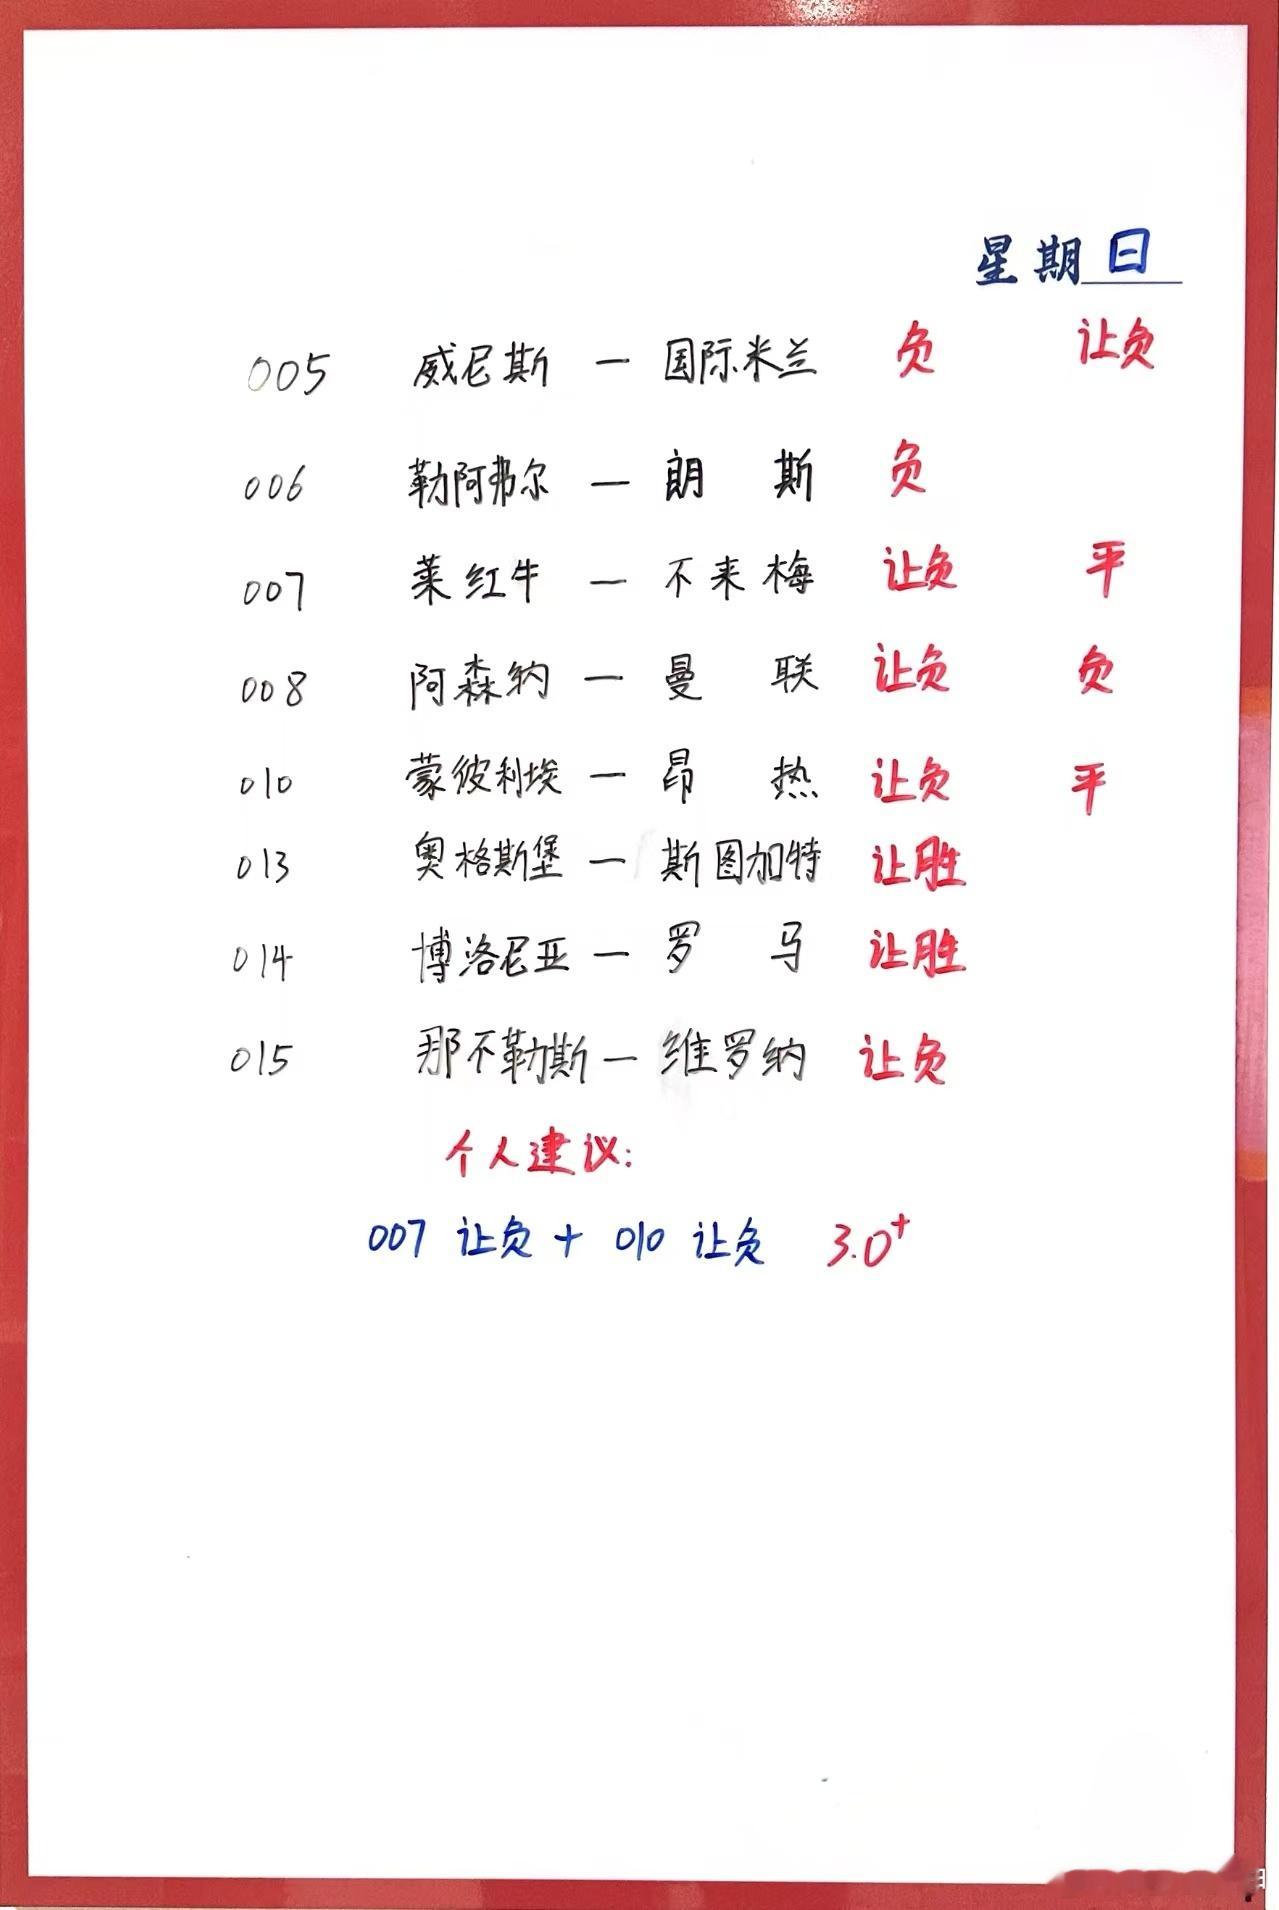 星期日
005 威尼斯 — 国际米兰 负 让负
006 勒阿弗尔 — 朗斯 负
007 莱红牛 — 不来梅 让负 平
008 阿森纳 — 曼联 让负 负
010 蒙彼利埃 — 昂热 让负 平
013 奥格斯堡 — 斯图加特 让胜
014 博洛尼亚 — 罗马 让胜
015 那不勒斯 — 维罗纳 让负
个人建议:
007 让负 + 010 让负 3.0+